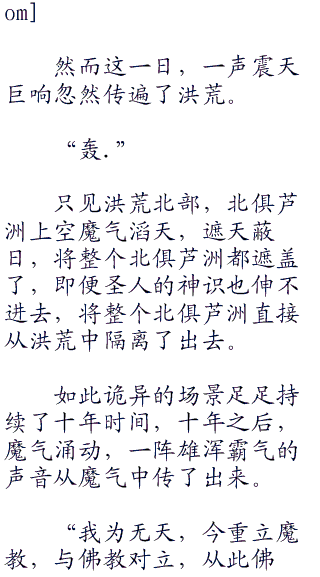 om]
然而这一日，一声震天
巨响忽然传遍了洪荒。
“轰.”
只见洪荒北部，北俱芦
洲上空魔气滔天，遮天蔽
日，将整个北俱芦洲都遮盖
了，即便圣人的神识也伸不
进去，将整个北俱芦洲直接
从洪荒中隔离了出去。
如此诡异的场景足足持
续了十年时间，十年之后，
魔气涌动，一阵雄浑霸气的
声音从魔气中传了出来。
“我为无天，今重立魔
教，与佛教对立，从此佛